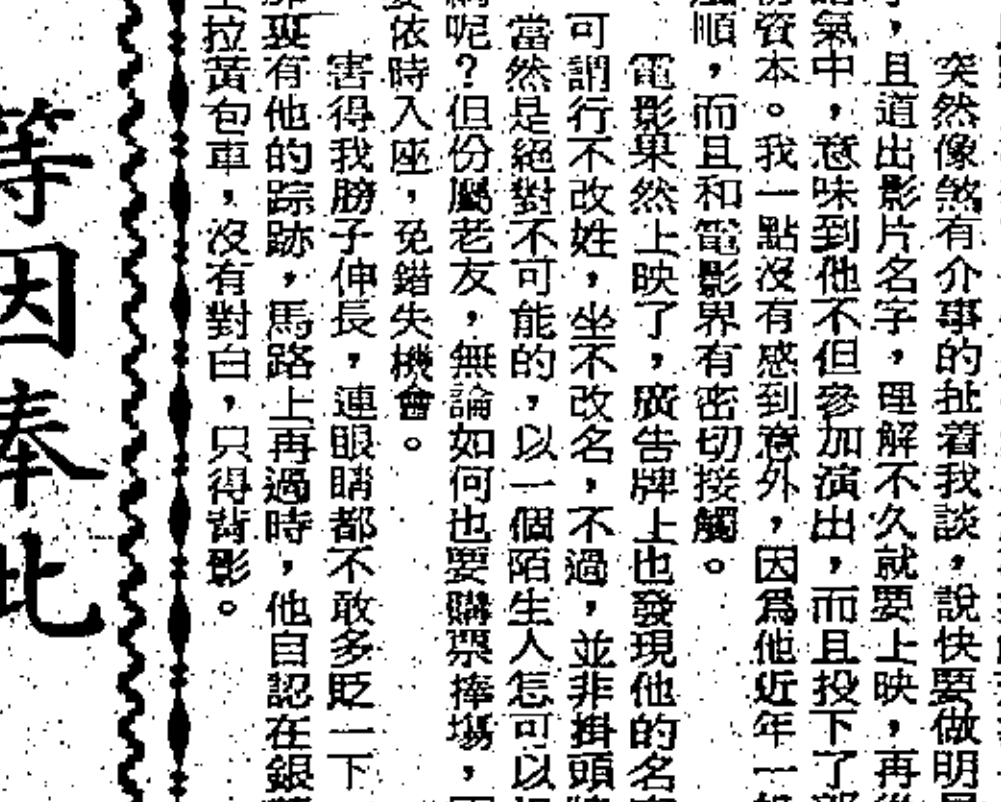 突然像煞有介事的扯着我談，說快要做明
，且道出影片名字，理解不久就要上映，再
氣中，意味到他不但參加演出，而且投下了
資本。我一點沒有感到意外，因爲他近年一
順，而且和電影界有密切接觸。
電影果然上映了，廣告牌上也發現他的名
可謂行不改姓，坐不改名，不過，並非掛頭
當然是絕對不可能的，以一個陌生人怎可以
呢？但份屬老友，無論如何也要購票捧場，
依時入座，免錯失機會。
害得我膀子伸長，連眼睛都不敢多貶一下
裏有他的踪跡，馬路上再過時，他自認在銀
拉黃包車，沒有對白，只得背影。
等因奉此